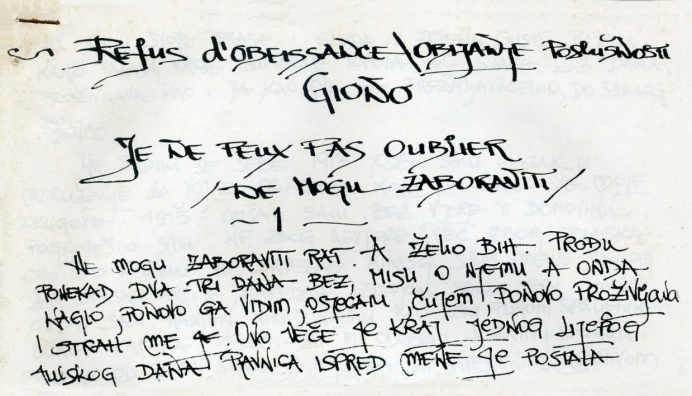 REFUS D'OBEISSANCE \ OBIJANJE POSLUŠNOSTI
GIONO
JE NE PEUX PAS OUBLIER
/ NE MOGU ZABORAVITI /
1
NE MOGU ZABORAVITI RAT. A ŽELIO BIH. PROĐU
PONEKAD DVA, TRI DANA BEZ MISLI O NJEMU A ONDA
NAGLO, PONOVO GA VIDIM, OSJEĆAM, ČUJEM, PONOVO PROŽIVLJAVA
I STRAH ME JE. OVO VEČE JE KRAJ JEDNOG LIJEPOG
JULSKOG DANA. RAVNICA ISPRED MENE JE POSTALA